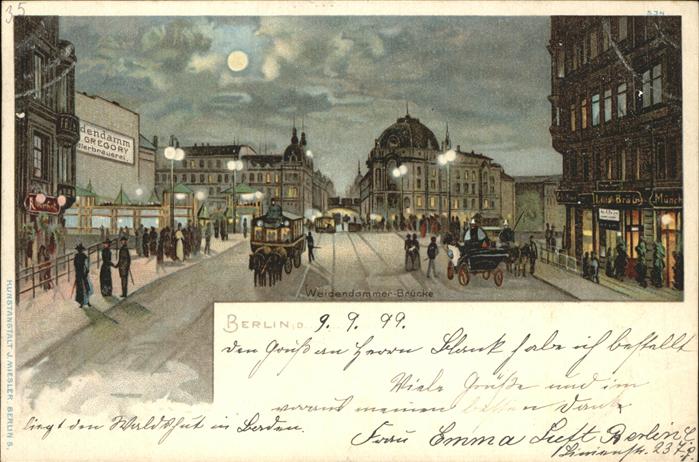 35
534
dendamm
GREGORY
erbrauerei.
Löwe-Bräu
Münch
Weidendammer-Brücke
BERLIN, D. 9. 9. 99.
den Gruß an Herrn Blank habe ich bestellt
Viele Grüße und im
voraus meinen besten Dank
liegt den Waldshut in Baden.
Frau Emma Luft Berlin C.
Linienstr. 237 g.
KUNSTANSTALT J. MIESLER, BERLIN S.